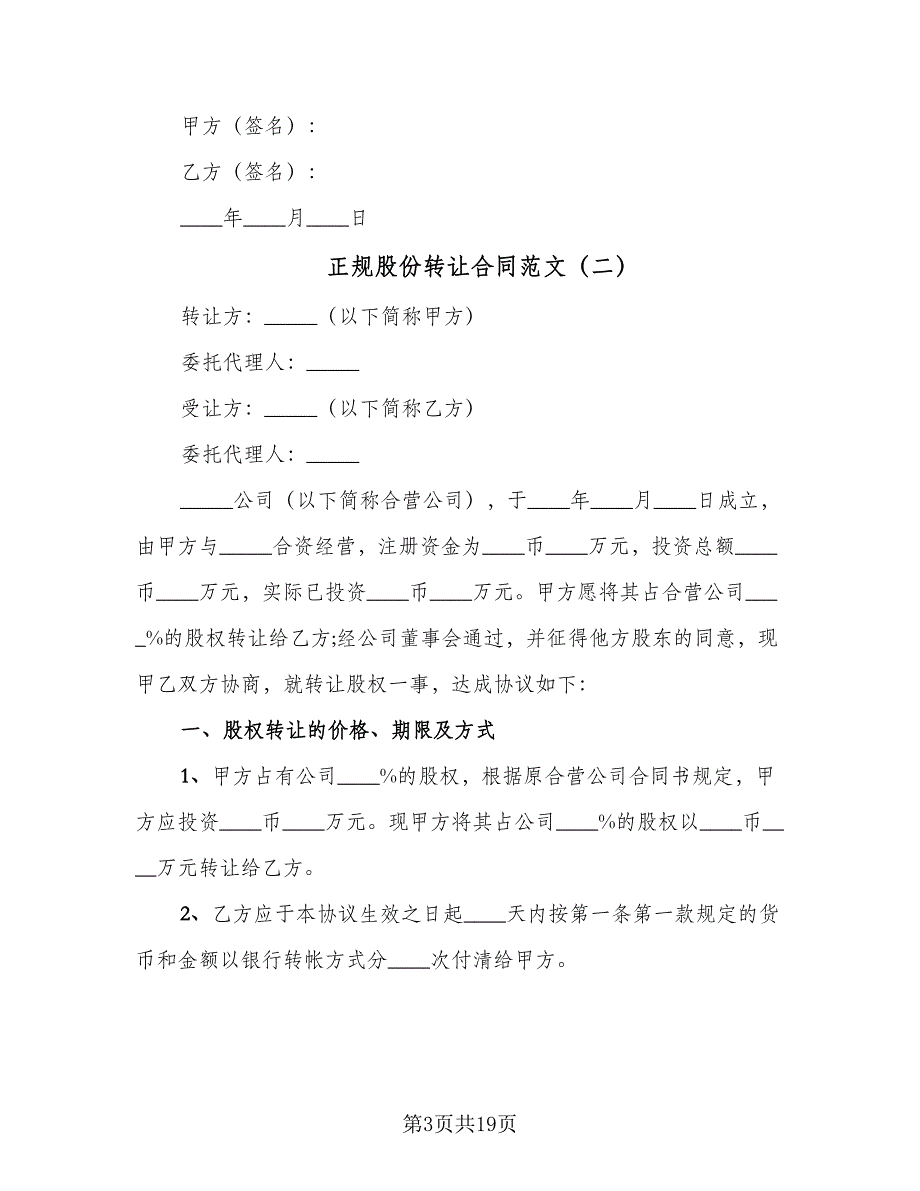 甲方（签名）：
乙方（签名）：
____年____月____日
正规股份转让合同范文（二）
转让方：_____（以下简称甲方）
委托代理人：_____
受让方：_____（以下简称乙方）
委托代理人：_____
_____公司（以下简称合营公司），于____年____月____日成立，
由甲方与_____合资经营，注册资金为____币____万元，投资总额____
币____万元，实际已投资____币____万元。甲方愿将其占合营公司___
_%的股权转让给乙方;经公司董事会通过，并征得他方股东的同意，现
甲乙双方协商，就转让股权一事，达成协议如下：
一、股权转让的价格、期限及方式
1、甲方占有公司____%的股权，根据原合营公司合同书规定，甲
方应投资____币____万元。现甲方将其占公司____%的股权以____币__
__万元转让给乙方。
2、乙方应于本协议生效之日起____天内按第一条第一款规定的货
币和金额以银行转帐方式分____次付清给甲方。
第3页共19页